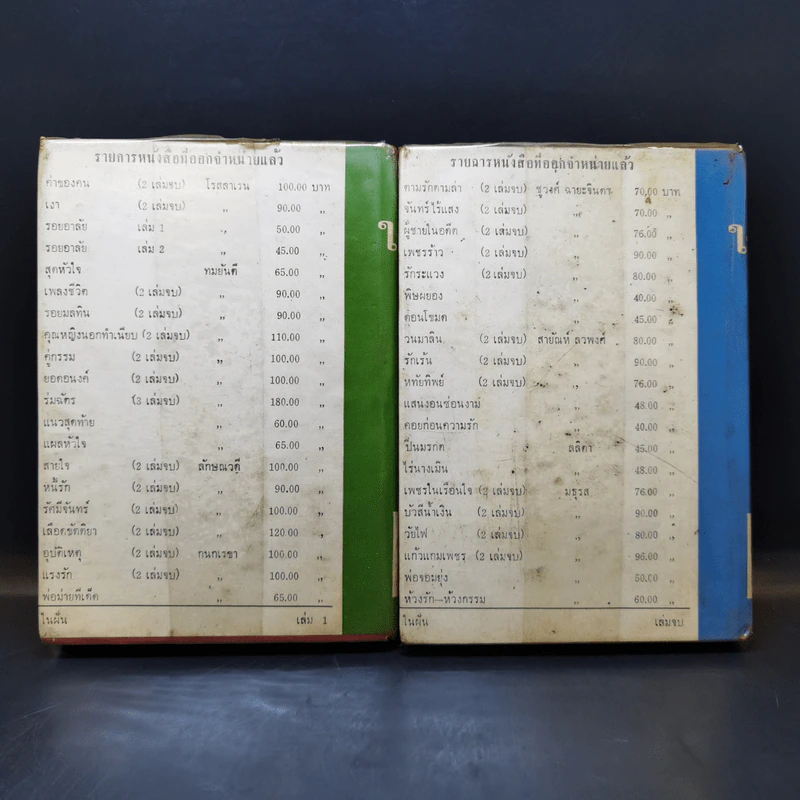 รายการหนังสือที่ออกจำหน่ายแล้ว
ค่าของคน (2 เล่มจบ) โรสลาเรน 100.00 บาท
เงา (2 เล่มจบ) ,, 90.00 ,,
รอยอาลัย เล่ม 1 ,, 50.00 ,,
รอยอาลัย เล่ม 2 ,, 45.00 ,,
สุดหัวใจ ทมยันตี 65.00 ,,
เพลงชีวิต (2 เล่มจบ) ,, 90.00 ,,
รอยมลทิน (2 เล่มจบ) ,, 90.00 ,,
คุณหญิงนอกทำเนียบ (2 เล่มจบ) ,, 110.00 ,,
คู่กรรม (2 เล่มจบ) ,, 100.00 ,,
ยอดอนงค์ (2 เล่มจบ) ,, 100.00 ,,
ร่มฉัตร (3 เล่มจบ) ,, 180.00 ,,
แนวสุดท้าย ,, 60.00 ,,
แผลหัวใจ ,, 65.00 ,,
สายใจ (2 เล่มจบ) ลักษณวดี 100.00 ,,
หนี้รัก (2 เล่มจบ) ,, 90.00 ,,
รัศมีจันทร์ (2 เล่มจบ) ,, 100.00 ,,
เลือดขัตติยา (2 เล่มจบ) ,, 120.00 ,,
อุบัติเหตุ (2 เล่มจบ) กนกเรขา 100.00 ,,
แรงรัก (2 เล่มจบ) ,, 100.00 ,,
พ่อม่ายทีเด็ด ,, 65.00 ,,
ในฝัน เล่ม 1
ใ
รายการหนังสือที่ออกจำหน่ายแล้ว
ตามรักตามล่า (2 เล่มจบ) ชูวงศ์ ฉายะจินดา 70.00 บาท
จันทร์ไร้แสง (2 เล่มจบ) ,, 70.00 ,,
ผู้ชายในอดีต (2 เล่มจบ) ,, 76.00 ,,
เพชรร้าว (2 เล่มจบ) ,, 90.00 ,,
รักระแวง (2 เล่มจบ) ,, 80.00 ,,
พิษผยอง ,, 40.00 ,,
ต่อนโขมด ,, 45.00 ,,
วนมาลิน (2 เล่มจบ) สายัณห์ ลวพงศ์ 80.00 ,,
รักเร้น (2 เล่มจบ) ,, 90.00 ,,
หทัยทิพย์ (2 เล่มจบ) ,, 76.00 ,,
แสนงอนซ่อนงาม ,, 48.00 ,,
คอยก่อนความรัก ,, 40.00 ,,
ปิ่นมรกต ลลิตา 45.00 ,,
ไร่นางเมิน ,, 48.00 ,,
เพชรในเรือนใจ (2 เล่มจบ) มธุรส 76.00 ,,
บัวสีน้ำเงิน (2 เล่มจบ) ,, 90.00 ,,
วัยไฟ (2 เล่มจบ) ,, 80.00 ,,
แก้วแกมเพชร (2 เล่มจบ) ,, 96.00 ,,
พ่อจอมยุ่ง ,, 50.00 ,,
ห้วงรัก—ห้วงกรรม ,, 60.00 ,,
ในฝัน เล่มจบ
ใ